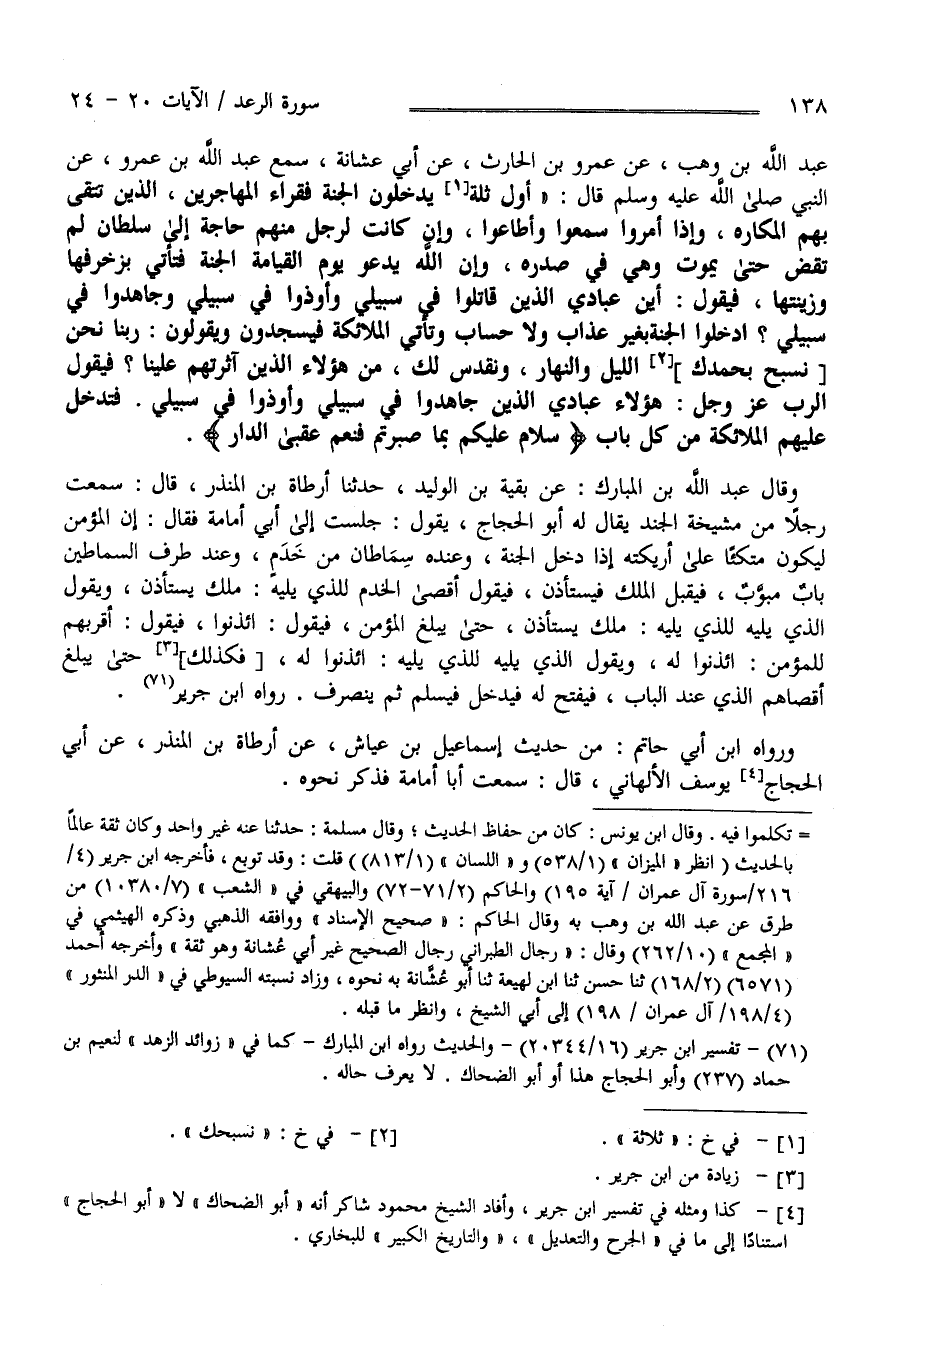 ١٣٨ سورة الرعد / الآيات ٢٠ - ٢٤
عبد اللَّه بن وهب ، عن عمرو بن الحارث ، عن أبي عشانة ، سمع عبد اللَّه بن عمرو ، عن
النبي صلىٰ اللَّه عليه وسلم قال : « أول ثلة[١] يدخلون الجنة فقراء المهاجرين ، الذين تتقى
بهم المكاره ، وإذا أمروا سمعوا وأطاعوا ، وإن كانت لرجل منهم حاجة إلىٰ سلطان لم
تقض حتىٰ يموت وهي في صدره ، وإن اللَّه يدعو يوم القيامة الجنة فتأتي بزخرفها
وزينتها ، فيقول : أين عبادي الذين قاتلوا في سبيلي وأوذوا في سبيلي وجاهدوا في
سبيلي ؟ ادخلوا الجنةبغير عذاب ولا حساب وتأتي الملائكة فيسجدون ويقولون : ربنا نحن
[ نسبح بحمدك ][٢] الليل والنهار ، ونقدس لك ، من هؤلاء الذين آثرتهم علينا ؟ فيقول
الرب عز وجل : هؤلاء عبادي الذين جاهدوا في سبيلي وأوذوا في سبيلي . فتدخل
عليهم الملائكة من كل باب ﴿ سلام عليكم بما صبرتم فنعم عقبىٰ الدار ﴾ .
وقال عبد اللَّه بن المبارك : عن بقية بن الوليد ، حدثنا أرطاة بن المنذر ، قال : سمعت
رجلًا من مشيخة الجند يقال له أبو الحجاج ، يقول : جلست إلىٰ أبي أمامة فقال : إن المؤمن
ليكون متكئًا علىٰ أريكته إذا دخل الجنة ، وعنده سِمَاطان من خَدَمٍ ، وعند طرف السماطين
بابٌ مبوَّبٌ ، فيقبل الملك فيستأذن ، فيقول أقصىٰ الخدم للذي يليه : ملك يستأذن ، ويقول
الذي يليه للذي يليه : ملك يستأذن ، حتىٰ يبلغ المؤمن ، فيقول : ائذنوا ، فيقول : أقربهم
للمؤمن : ائذنوا له ، ويقول الذي يليه للذي يليه : ائذنوا له ، [ فكذلك][٣] حتىٰ يبلغ
أقصاهم الذي عند الباب ، فيفتح له فيدخل فيسلم ثم ينصرف . رواه ابن جرير(٧١) .
ورواه ابن أبي حاتم : من حديث إسماعيل بن عياش ، عن أرطاة بن المنذر ، عن أبي
الحجاج[٤] يوسف الألهاني ، قال : سمعت أبا أمامة فذكر نحوه .
= تكلموا فيه . وقال ابن يونس : كان من حفاظ الحديث ؛ وقال مسلمة : حدثنا عنه غير واحد وكان ثقة عالماً
بالحديث ( انظر « الميزان » (٥٣٨/١) و « اللسان » (٨١٣/١)) قلت : وقد توبع ، فأخرجه ابن جرير (٤/
٢١٦/سورة آل عمران / آية ١٩٥) والحاكم (٧١/٢-٧٢) والبيهقي في « الشعب » (١٠٣٨٠/٧) من
طرق عن عبد الله بن وهب به وقال الحاكم : « صحيح الإسناد » ووافقه الذهبي وذكره الهيثمي في
« المجمع » (٢٦٢/١٠) وقال : « رجال الطبراني رجال الصحيح غير أبي عُشانة وهو ثقة » وأخرجه أحمد
(٦٥٧١) (١٦٨/٢) ثنا حسن ثنا ابن لهيعة ثنا أبو عُشَّانة به نحوه ، وزاد نسبته السيوطي في « الدر المنثور »
(١٩٨/٤/ آل عمران / ١٩٨) إلى أبي الشيخ ، وانظر ما قبله .
(٧١) - تفسير ابن جرير (٢٠٣٤٤/١٦) - والحديث رواه ابن المبارك - كما في « زوائد الزهد » لنعيم بن
حماد (٢٣٧) وأبو الحجاج هذا أو أبو الضحاك . لا يعرف حاله .
[١] - في خ : « ثلاثة » . [٢] - في خ : « نسبحك » .
[٣] - زيادة من ابن جرير .
[٤] - كذا ومثله في تفسير ابن جرير ، وأفاد الشيخ محمود شاكر أنه « أبو الضحاك » لا « أبو الحجاج »
استنادًا إلى ما في « الجرح والتعديل » ، « والتاريخ الكبير » للبخاري .